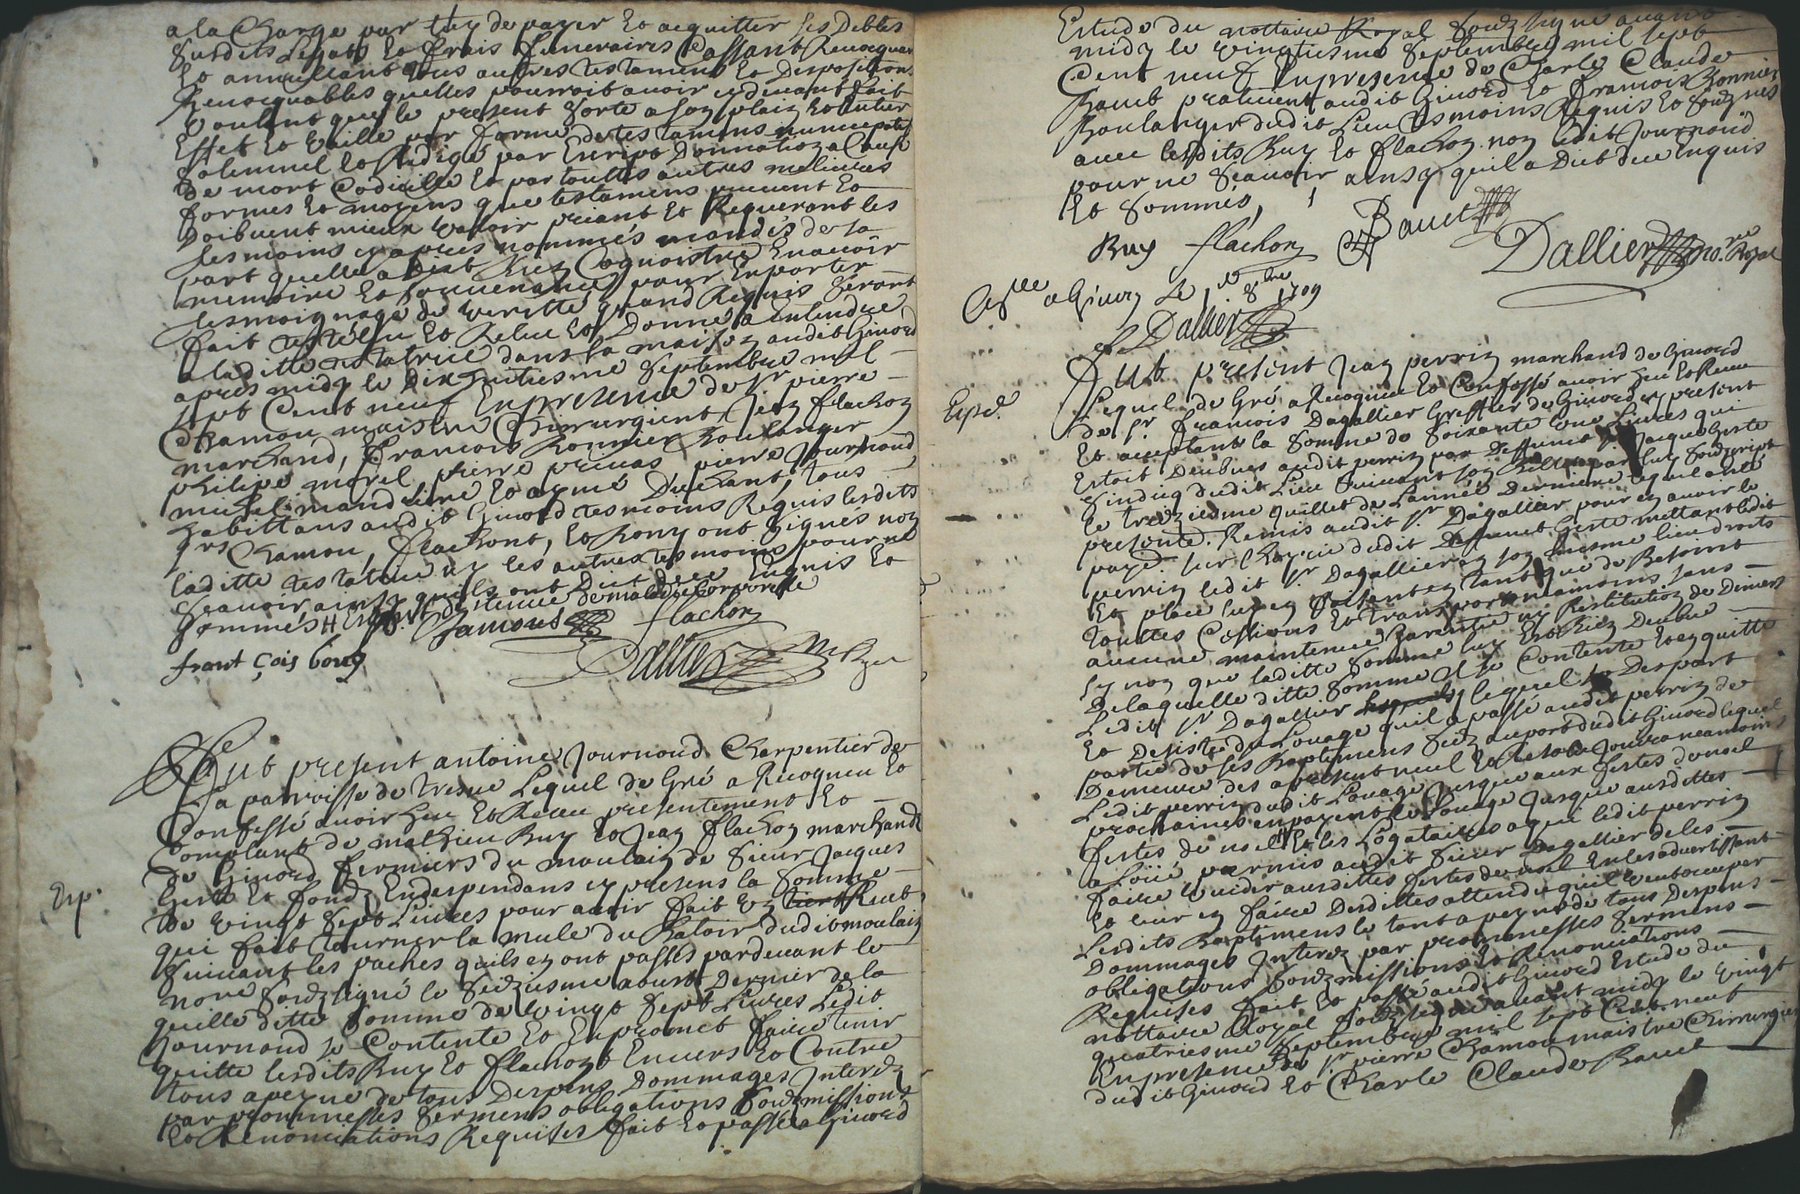 a la Charge par luy de payer et acquitter ses Debtes
susdits Legats et frais funeraires Cassant Revocquant
et annullant tous autres testaments et Dispositions
Revocquables quelles pourroit avoir cydevant fait
Voulant que le present sorte a son plain et entier
Effet et vaille par forme de testament nuncupatif
solemnel et Redigé par Escript Donnation a Cause
de mort Codicille et par touttes autres melieures
formes et moyens que testaments peuvent et
Doibvent mieux valoir priant et Requerant les
tesmoins cy apres nommés mandés de sa
part quelle a Dict bien Cognoistre En avoir
memoire et souvenance pour En porter
tesmoignage de veritté quand Requis seront
fait et Relue et Donné a entendre
a laditte testatrice dans sa maison audit Givord
apres midy le Dixhuitiesme Septembre mil
sept Cent neuf En presence de sr pierre
Chamou maistre Chirurgient, Jean flachon
marchand, francois bonnier boulanger
philipe morel pierre privas, pierre Journoud
et aymé Duchant, tous
habittans audit Givord tesmoins Réquis lesdits
srs Chamou, flachont, et bony ont signés non
laditte testatrice ny les autres tesmoins pour ne
sçavoir ainsy quils ont Dict de ce Enquis et
sommés
Chamout flachon
frant çois bony
Dallier No Royal
fut present antoine Journoud Charpentier de
la parroisse de tresve Lequel de Gré a Recogneu et
Confessé avoir heu et Receu presentement et
Comptant de mathieu Ruy et Jean flachon marchands
de Givord fermiers du moulain de sieur Jacques
Geste et fonds En dependans cy presens la somme
Exp.
de vingt sept Livres pour avoir fait
qui fait tourner la mule du batoir dudit moulain
suivant les paches quils en ont passés pardevant le
nore soubzsigné le seiziesme aoust Dernier de la
quelle ditte somme de vingt sept Livres Ledit
Journoud se Contente et En promet faire tenir
quitte lesdits Ruy et flachont Envers et Contre
tous a peyne de tous Despens Dommages Interetz
par prommesses sermens obligations soubzmissions
et Renonciations Requises fait et passé a Givord
Estude du nottaire Royal soubzsigné avant
midy le vingtiesme Septembre mil sept
Cent neuf En presence de Charle Claude
Bauet praticient audit Givord et francois Bonnier
Boulanger dudit Lieu tesmoins Requis et soubzsignés
avec lesdits Ruy et flachon non ledit Journoud
pour ne sçavoir ainsy quil a Dict de ce Enquis
et sommés,
Ruy flachon Bauet
Dallier no.re Royal
a Givors Le 8bre 1709
Dallier
fut present Jean perrin marchand de Givord
Exp.
Lequel de Gré a Recogneu et Confessé avoir heu et Receu
de sr francois Dagallier Greffier de Givord cy present
et acceptant la somme de soixante une Livres qui
Estoit Deubues audit perrin par Deffunct Jacques Geste
sindicq dudit Lieu suivant son billet par luy soubscript
le treiziesme Juillet de l'année Derniere lequel a esté
presenté. Remis audit sr Dagallier pour en avoir le
payé sur l'hoirie dudit Deffunct Geste mettant ledit
perrin ledit sr Dagallier en son mesme lieu droits
Et place luy en faisant en tant que de Besoint
touttes Cessions et transport neanmoins sans
aucune maintenue garentie ny Restitution de Deniers
sy non que laditte somme luy Est bien Deubue
De laquelle ditte somme Il se Contente et en quitte
Ledit sr Dagallier lequel se Despart
et Desiste du Louage quil a passé audit perrin de
partie de ses bastimens siz au port dudit Givord lequel
Demeure des apresent nul Et Resolu Jouira neanmoins
Ledit perrin dudit Louage Jusque aux festes de noel
prochaines en payent le Louage Jusque ausdittes
festes de noel Et les Logataires a qui ledit perrin
a Loüé permis audit sieur Dagallier de les
faire vuider ausdittes festes de noel En les advertissant
et leur en faire Desdittes attendu quil veut occuper
Lesdits bastimens le tout a peyne de tous Despens
Dommages Interez par prommesses sermens
obligations soubzmissions et Renonciations
Requises fait et passé audit Givord Estude du
nottaire Royal soubzsigné avant midy le vingt
quatriesme Septembre mil sept Cent neuf
En presence de sr pierre Chamou maistre Chirurgien
dudit Givord et Charle Claude Bauet